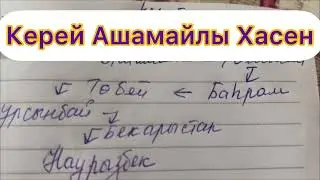 Керей Ашамайлы Хасен
Төбей ← Баһрам
Урсынбай
Бекарыстан
Наурызбек